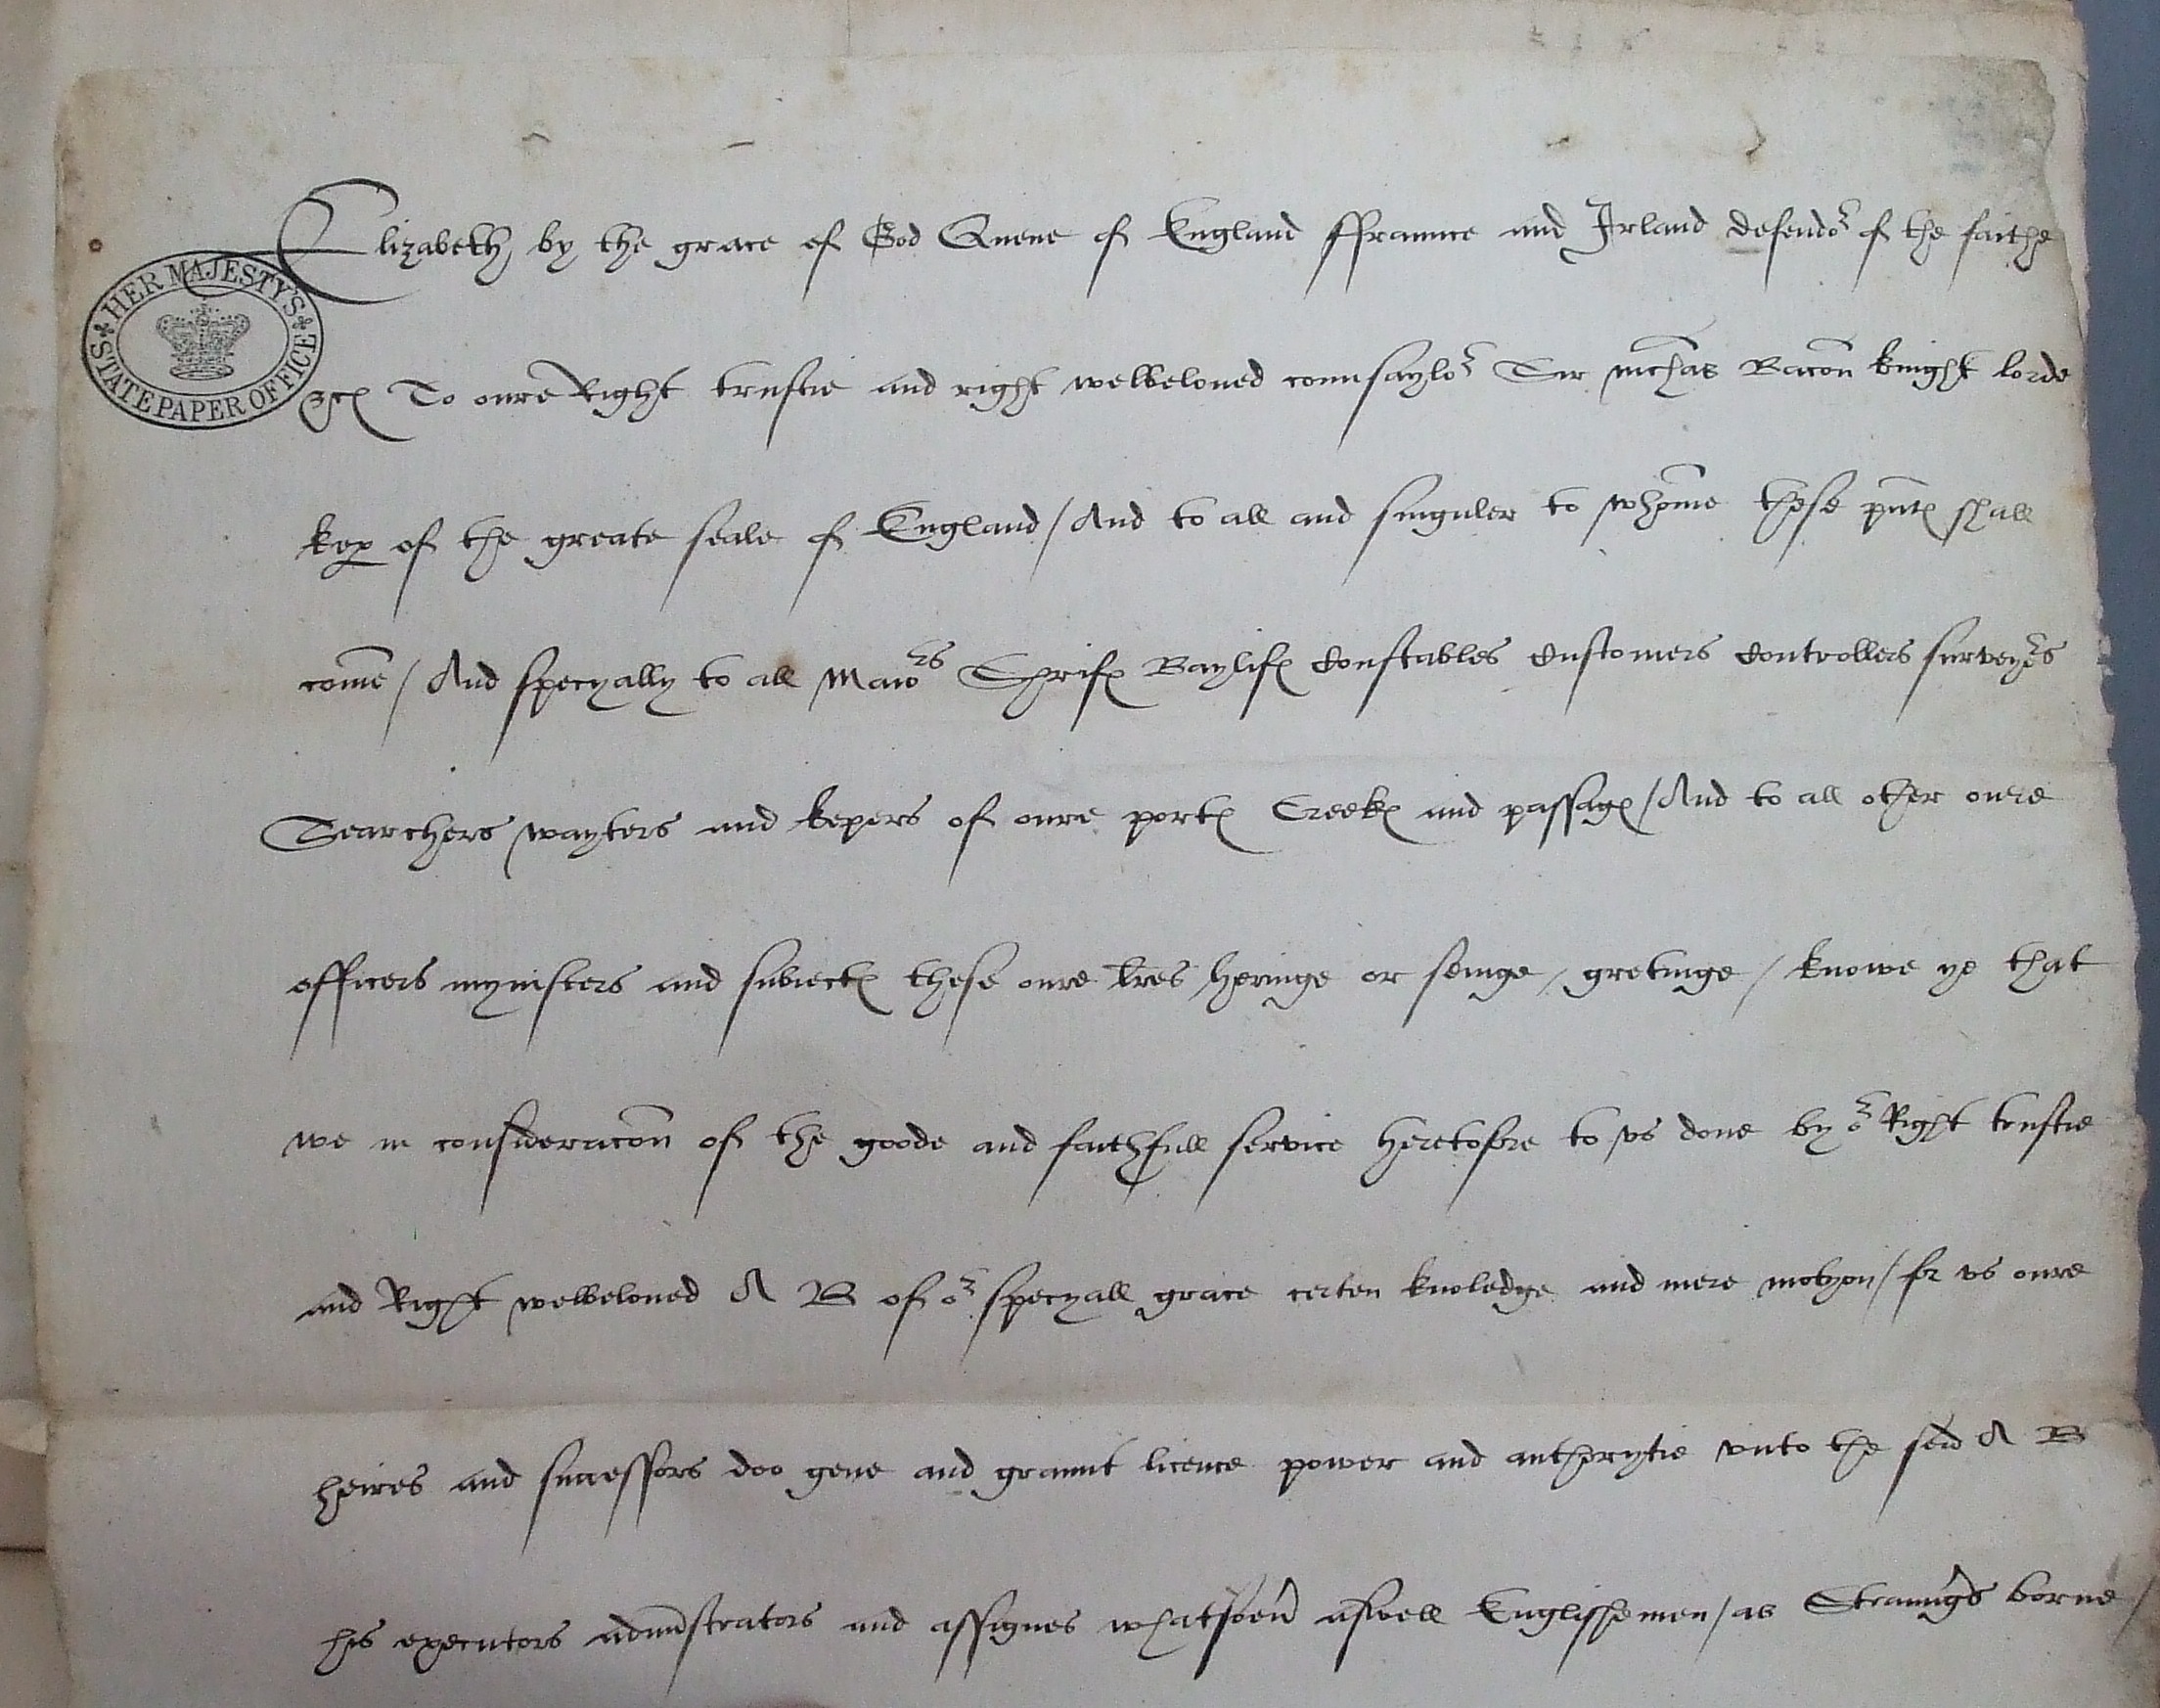 HER MAJESTY'S STATE PAPER OFFICE
Elizabeth by the grace of God Quene of England ffraunce and Irland defendor of the faithe
&c To oure Right trustie and right welbeloued counsaylor Sir Nichas Bacon knight lorde
kep of the greate seale of England / And to all and singuler to whome these pnts shall
come / And specyally to all Maiors Shrifs Baylifs Constables Customers Controllers surveyors
Searchers wayters and kepers of oure ports Creeks and passags / And to all other oure
officers mynisters and subiects these oure lres heringe or seinge / gretinge / knowe ye that
we in consideracon of the goode and faithfull service heretofore to vs done by or Right trustie
and Right welbeloued A B of or specyall grace certen knoledge and mere motyon / for vs oure
heires and successors doo geue and graunt licence power and autherytie vnto the seid A B
his executors administrators and assignes whatsoeu aswell Englishemen / as Straungs borne /